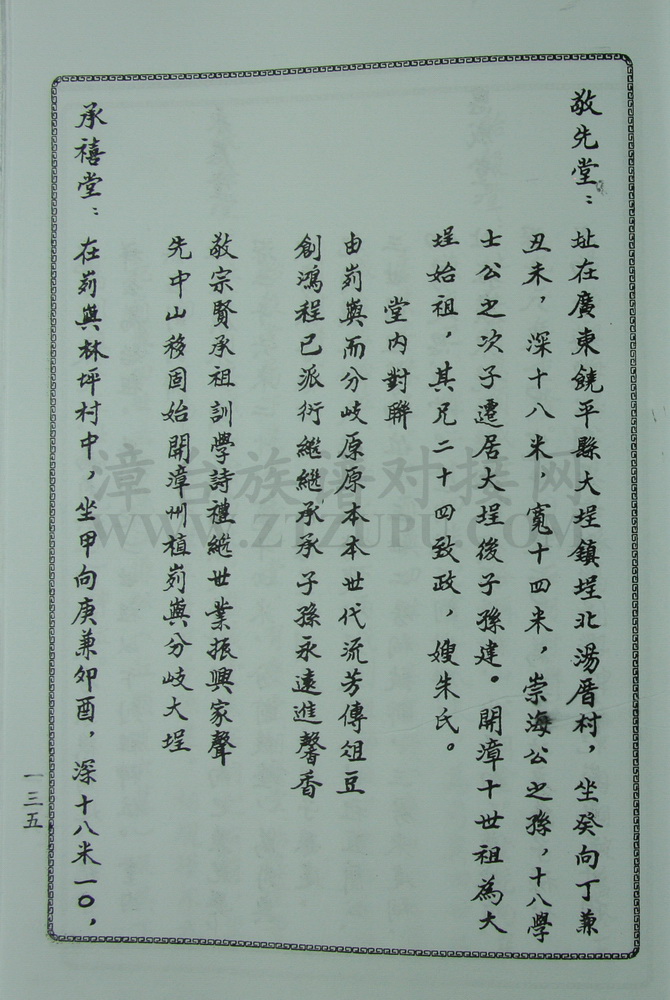 敬先堂：址在廣東饒平縣大埕鎮埕北湯厝村，坐癸向丁兼
丑未，深十八米，寬十四米，崇海公之孫，十八學
士公之次子遷居大埕後子孫建。開漳十世祖為大
埕始祖，其兄二十四致政，嫂朱氏。
堂內對聯
由峛㠘而分歧原原本本世代流芳傳俎豆
創鴻程已派衍繼繼承承子孫永遠進馨香
敬宗賢承祖訓學詩禮繼世業振興家聲
先中山移固始開漳州植峛㠘分歧大埕
承禧堂：在峛㠘林坪村中，坐甲向庚兼卯酉，深十八米一〇，
一三五
漳台族譜对接网
WWW.ZTZUPU.COM